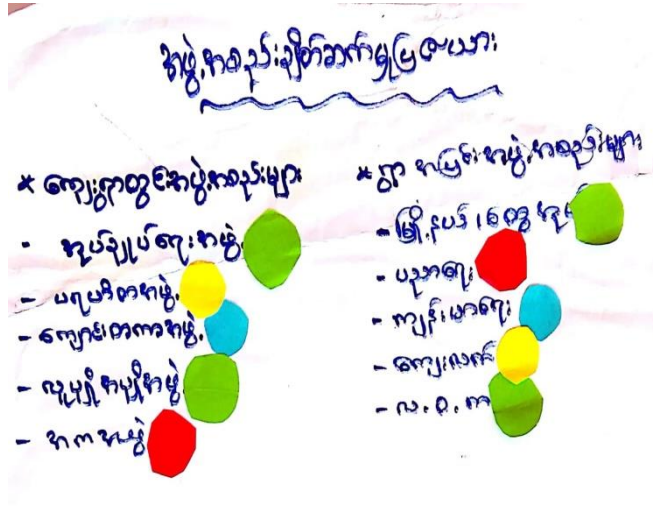 အဖွဲ့အစည်းချိတ်ဆက်မှုပြဇယား
* ကျေးရွာတွင်းအဖွဲ့အစည်းများ
- အုပ်ချုပ်ရေးအဖွဲ့
- ပရဟိတအဖွဲ့
- ကျောင်းတကာအဖွဲ့
- လူမှုအဖွဲ့
- အကအဖွဲ့
* ရွာအပြင်အဖွဲ့အစည်းများ
- မြို့နယ်
- ပညာရေး
- ကျန်းမာရေး
- ကျေးလက်
- လ.ဝ.က